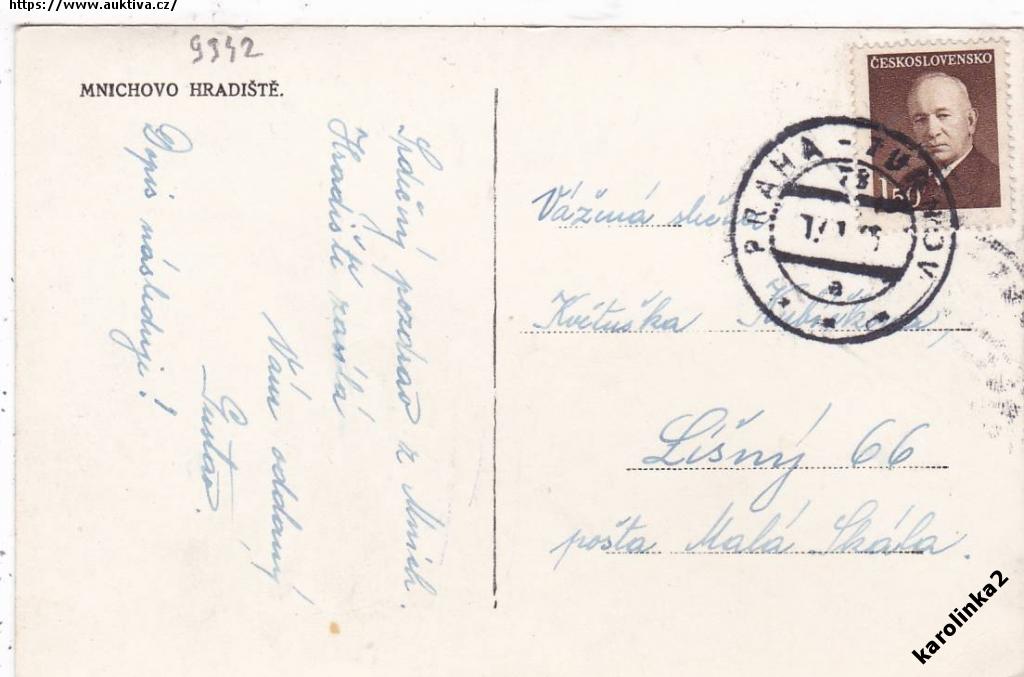 https://www.auktiva.cz/
9342
MNICHOVO HRADIŠTĚ.
Srdečný pozdrav z Mnich.
Hradiště zasílá
Vám oddaný
Gustav.
Dopis následuje!
ČESKOSLOVENSKO
1.50
PRAHA
a
Vážená slečna
Květuška
Líšný 66
pošta Malá Skála.
karolinka2